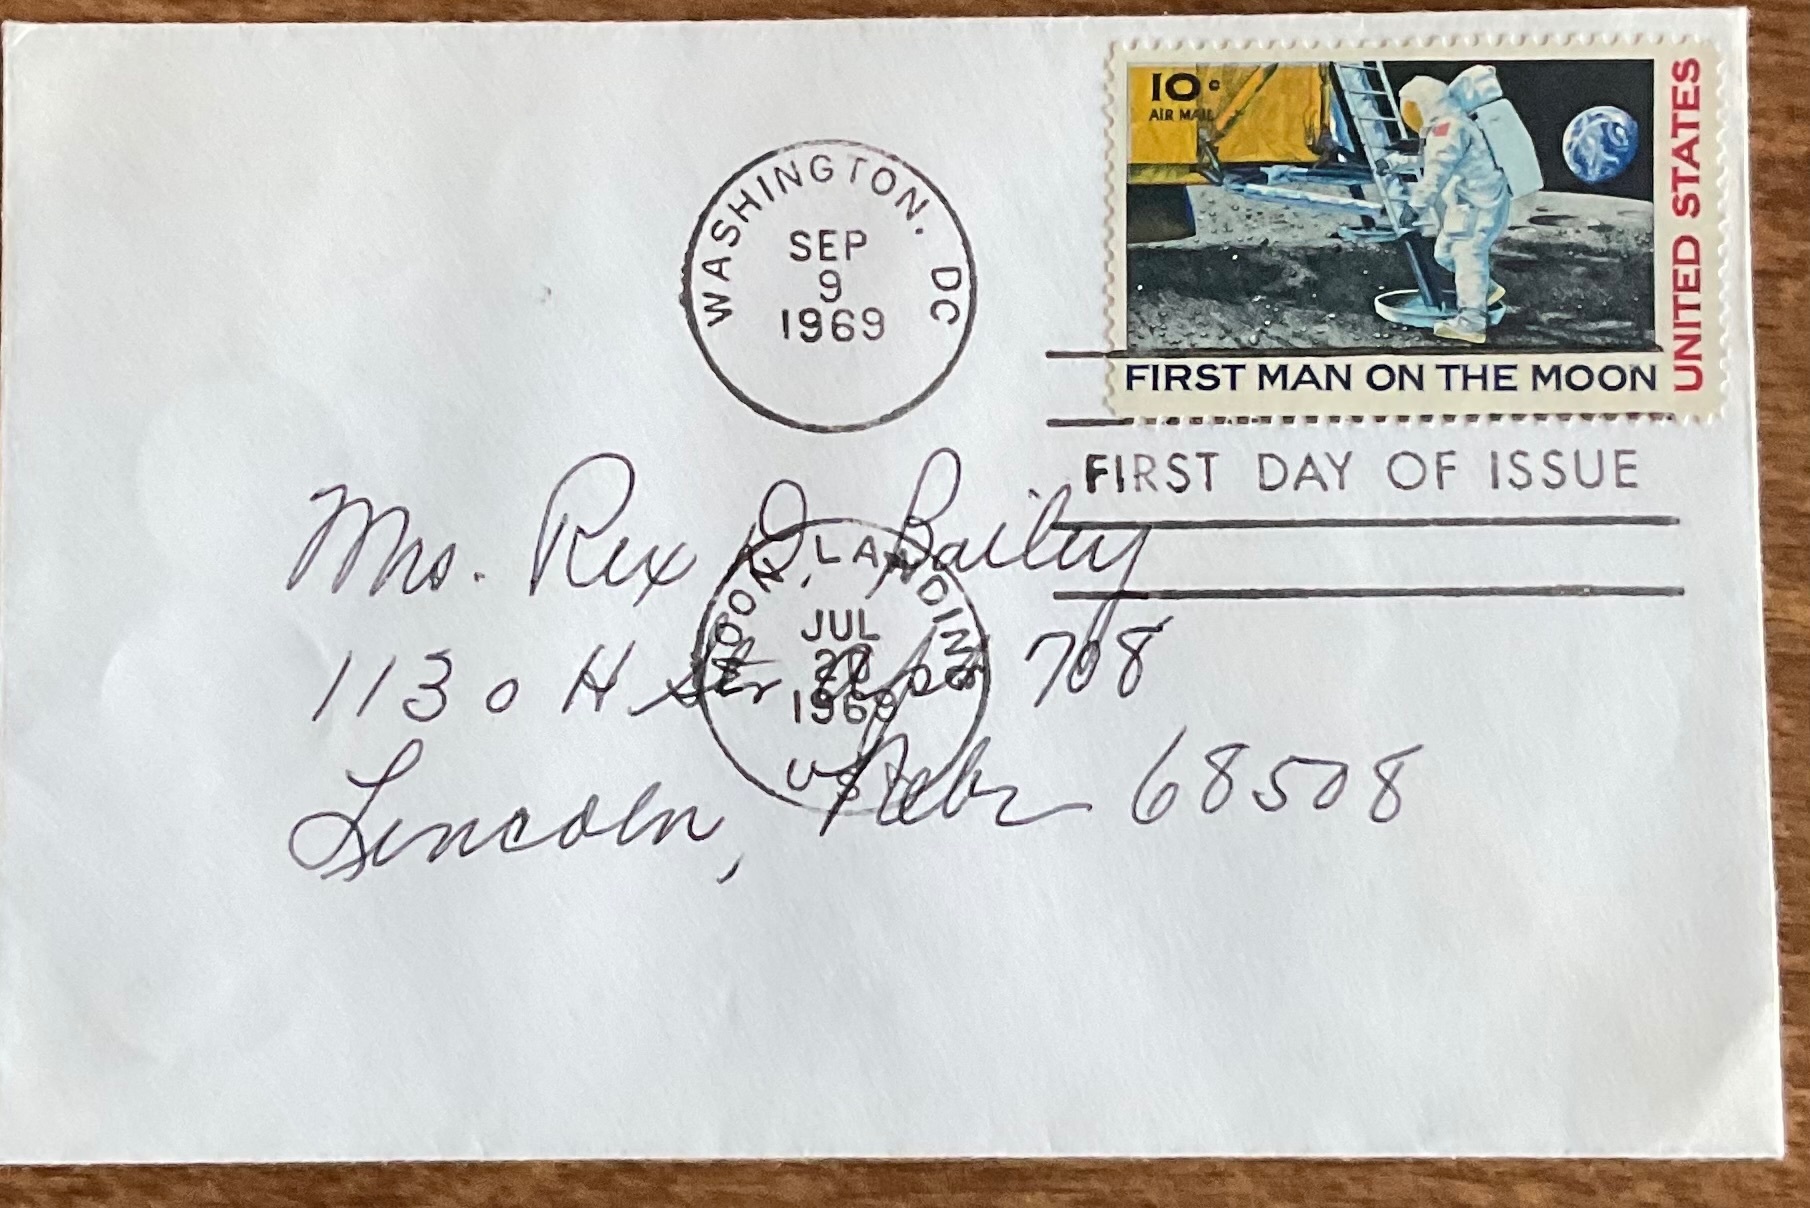 10c
AIR MAIL
UNITED STATES
FIRST MAN ON THE MOON
WASHINGTON. DC
SEP
9
1969
FIRST DAY OF ISSUE
Mrs. Rex D. Bailey
MOON LANDING
JUL
20
1969
USA
1130 H Str Apt 708
Lincoln, Nebr 68508